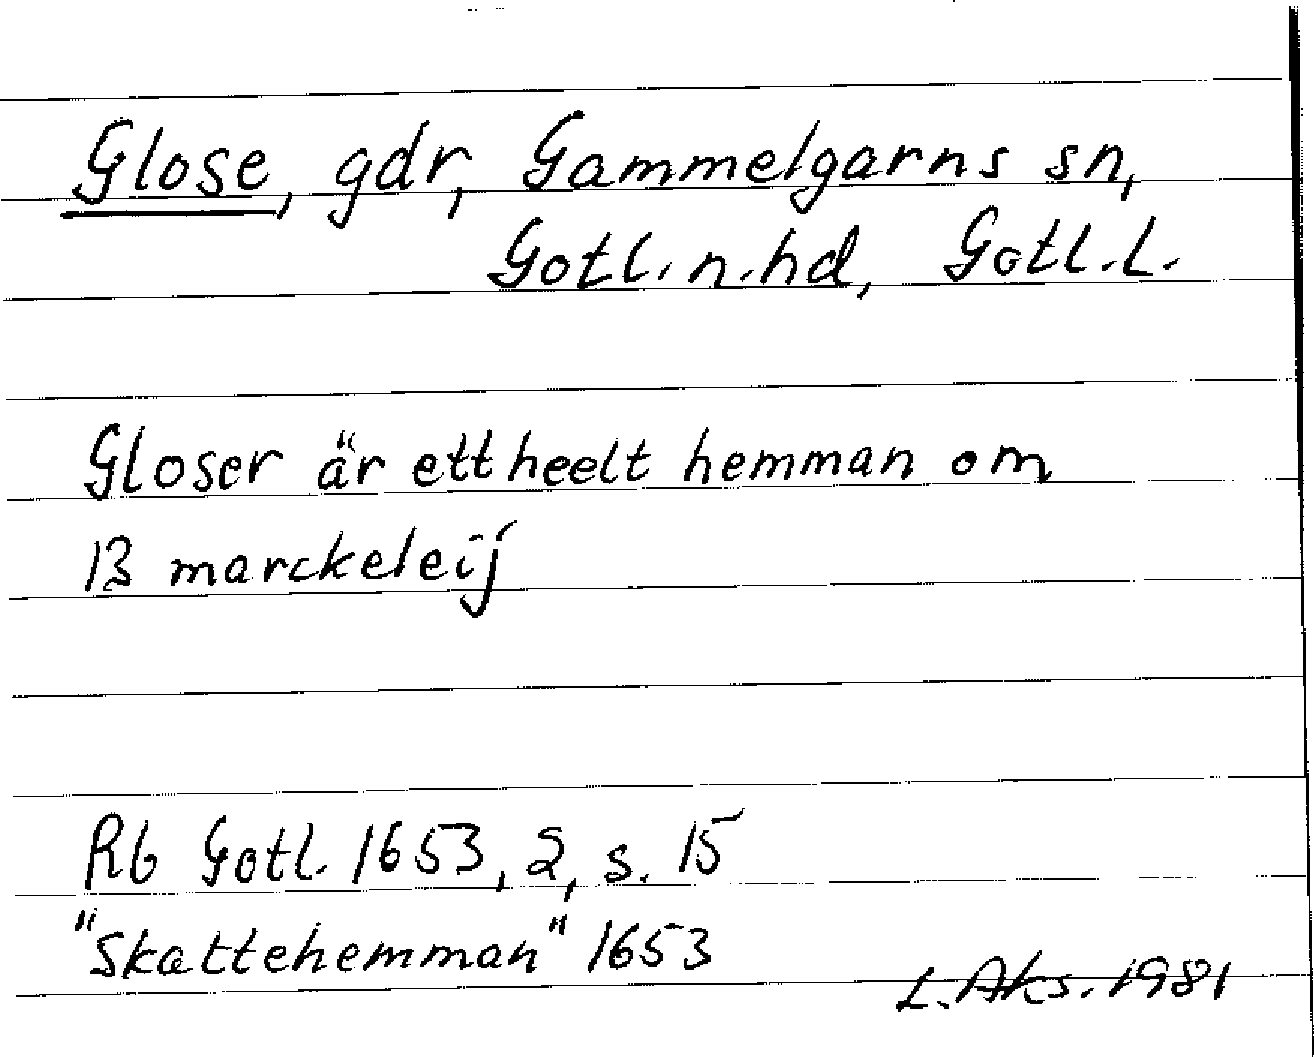 Glose, gdr, Gammelgarns sn,
Gotl. n. hd, Gotl. L.
Gloser är ett heelt hemman om
13 marckeleij
Rb Gotl. 1653, 2, s. 15
"Skattehemman" 1653
L. Aks. 1981